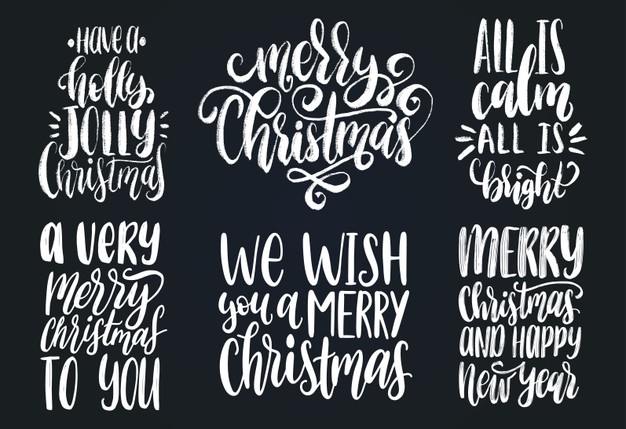 HAVE a
holly,
JOLLY
Christmas
merry
Christmas
ALL IS
calm
ALL IS
bright
a very
merry
christmas
TO YOU
We WISH
you a MERRY
Christmas
MERRY
Christmas
AND HAPPY
New Year